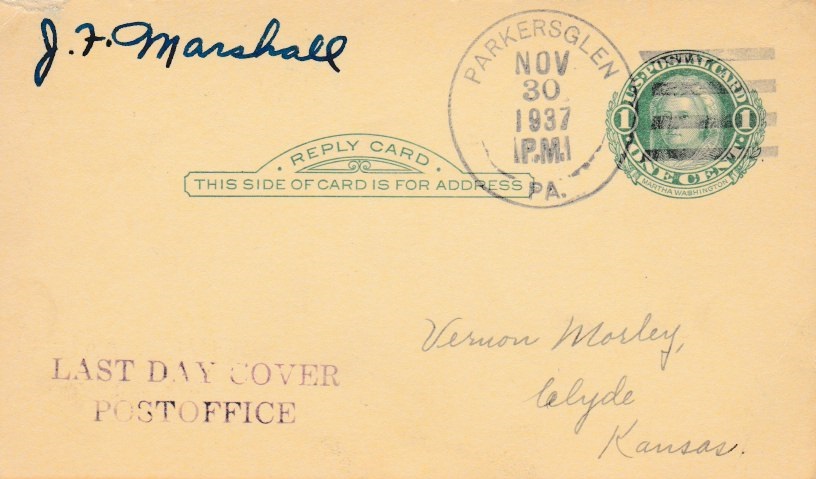 J. F. Marshall
PARKERSGLEN
NOV
30
1937
P.M.
PA.
U.S. POSTAL CARD
1 1
ONE CENT
MARTHA WASHINGTON
REPLY CARD
THIS SIDE OF CARD IS FOR ADDRESS
Vernon Morley,
Clyde
Kansas.
LAST DAY COVER
POSTOFFICE